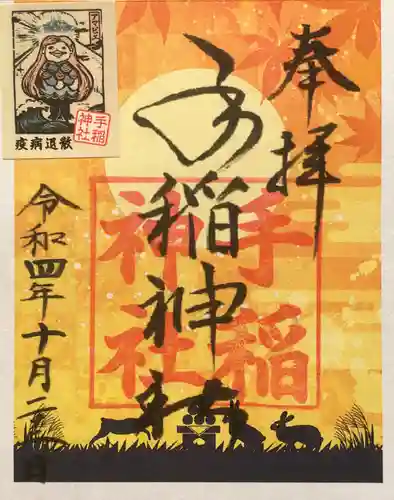 奉拝
手稲神社
手稲
神社
令和四年十月二 日
アマビエ
疫病退散
手稲
神社